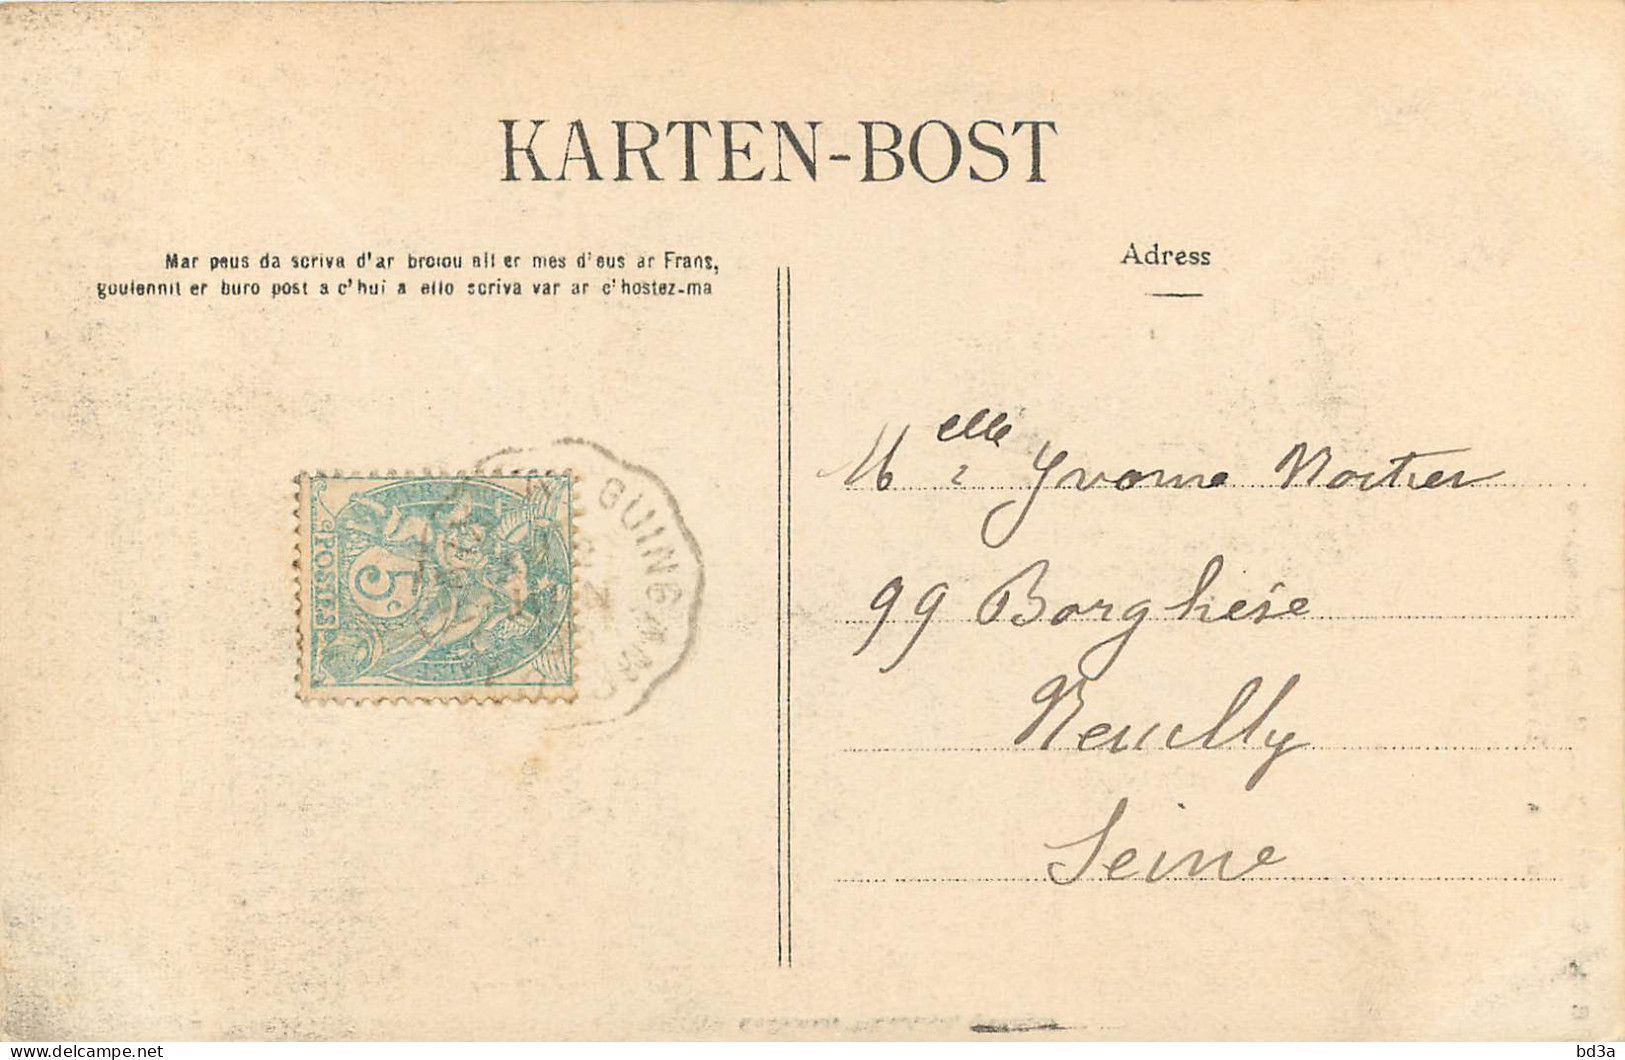 KARTEN-BOST
Mar peus da scriva d'ar broiou all er mes d'eus ar Frans,
goulennit er buro post a c'hui a ello scriva var ar c'hostez-ma
Adress
Melle Yvonne Mortier
99 Borghèse
Neuilly
Seine
POSTES
5c
GUINGAMP
bd3a